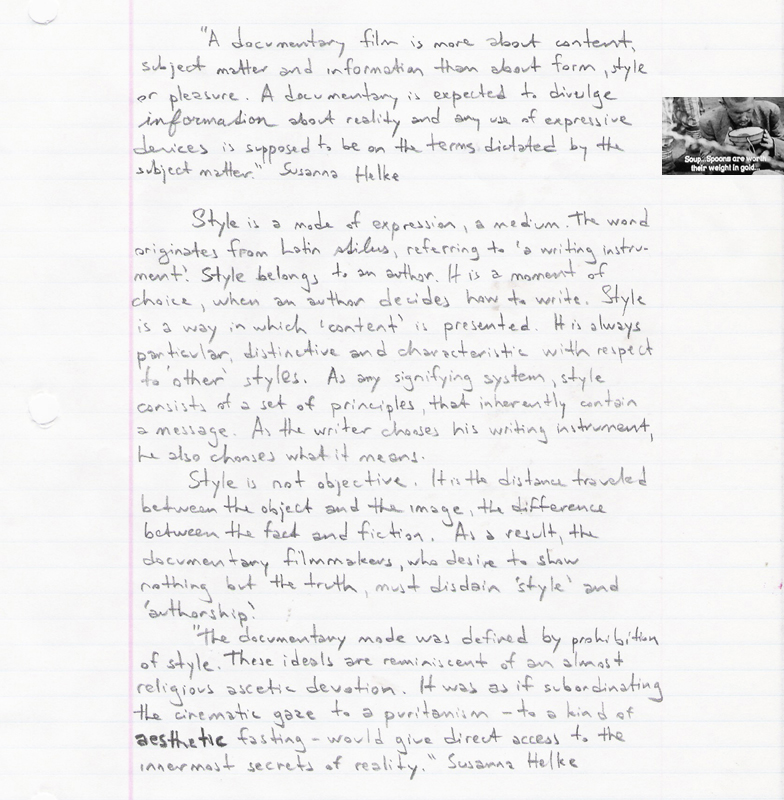 "A documentary film is more about content,
subject matter and information than about form, style
or pleasure. A documentary is expected to divulge
information about reality and any use of expressive
devices is supposed to be on the terms dictated by the
subject matter." Susanna Helke
Soup...Spoons are worth
their weight in gold...
Style is a mode of expression, a medium. The word
originates from Latin stilus, referring to 'a writing instru-
ment'. Style belongs to an author. It is a moment of
choice, when an author decides how to write. Style
is a way in which 'content' is presented. It is always
particular, distinctive and characteristic with respect
to 'other' styles. As any signifying system, style
consists of a set of principles, that inherently contain
a message. As the writer chooses his writing instrument,
he also chooses what it means.
Style is not objective. It is the distance traveled
between the object and the image, the difference
between the fact and fiction. As a result, the
documentary filmmakers, who desire to show
nothing but the truth, must disdain 'style' and
'authorship'.
"The documentary mode was defined by prohibition
of style. These ideals are reminiscent of an almost
religious ascetic devotion. It was as if subordinating
the cinematic gaze to a puritanism – to a kind of
aesthetic fasting – would give direct access to the
innermost secrets of reality." Susanna Helke